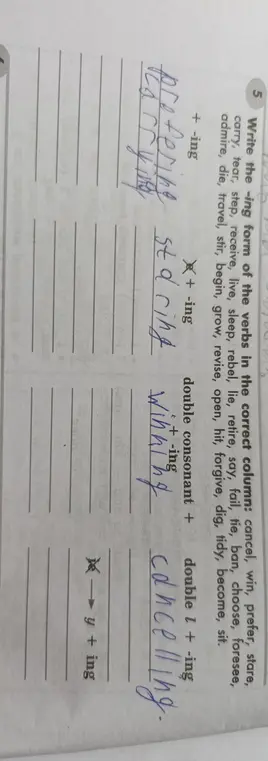 5 Write the -ing form of the verbs in the correct column: cancel, win, prefer, stare,
carry, tear, step, receive, live, sleep, rebel, lie, retire, say, fail, tie, ban, choose, foresee,
admire, die, travel, stir, begin, grow, revise, open, hit, forgive, dig, tidy, become, sit.
+ -ing e + -ing double consonant + double l + -ing
+ -ing
prefering staring winning cancelling.
carrying
ie → y + ing